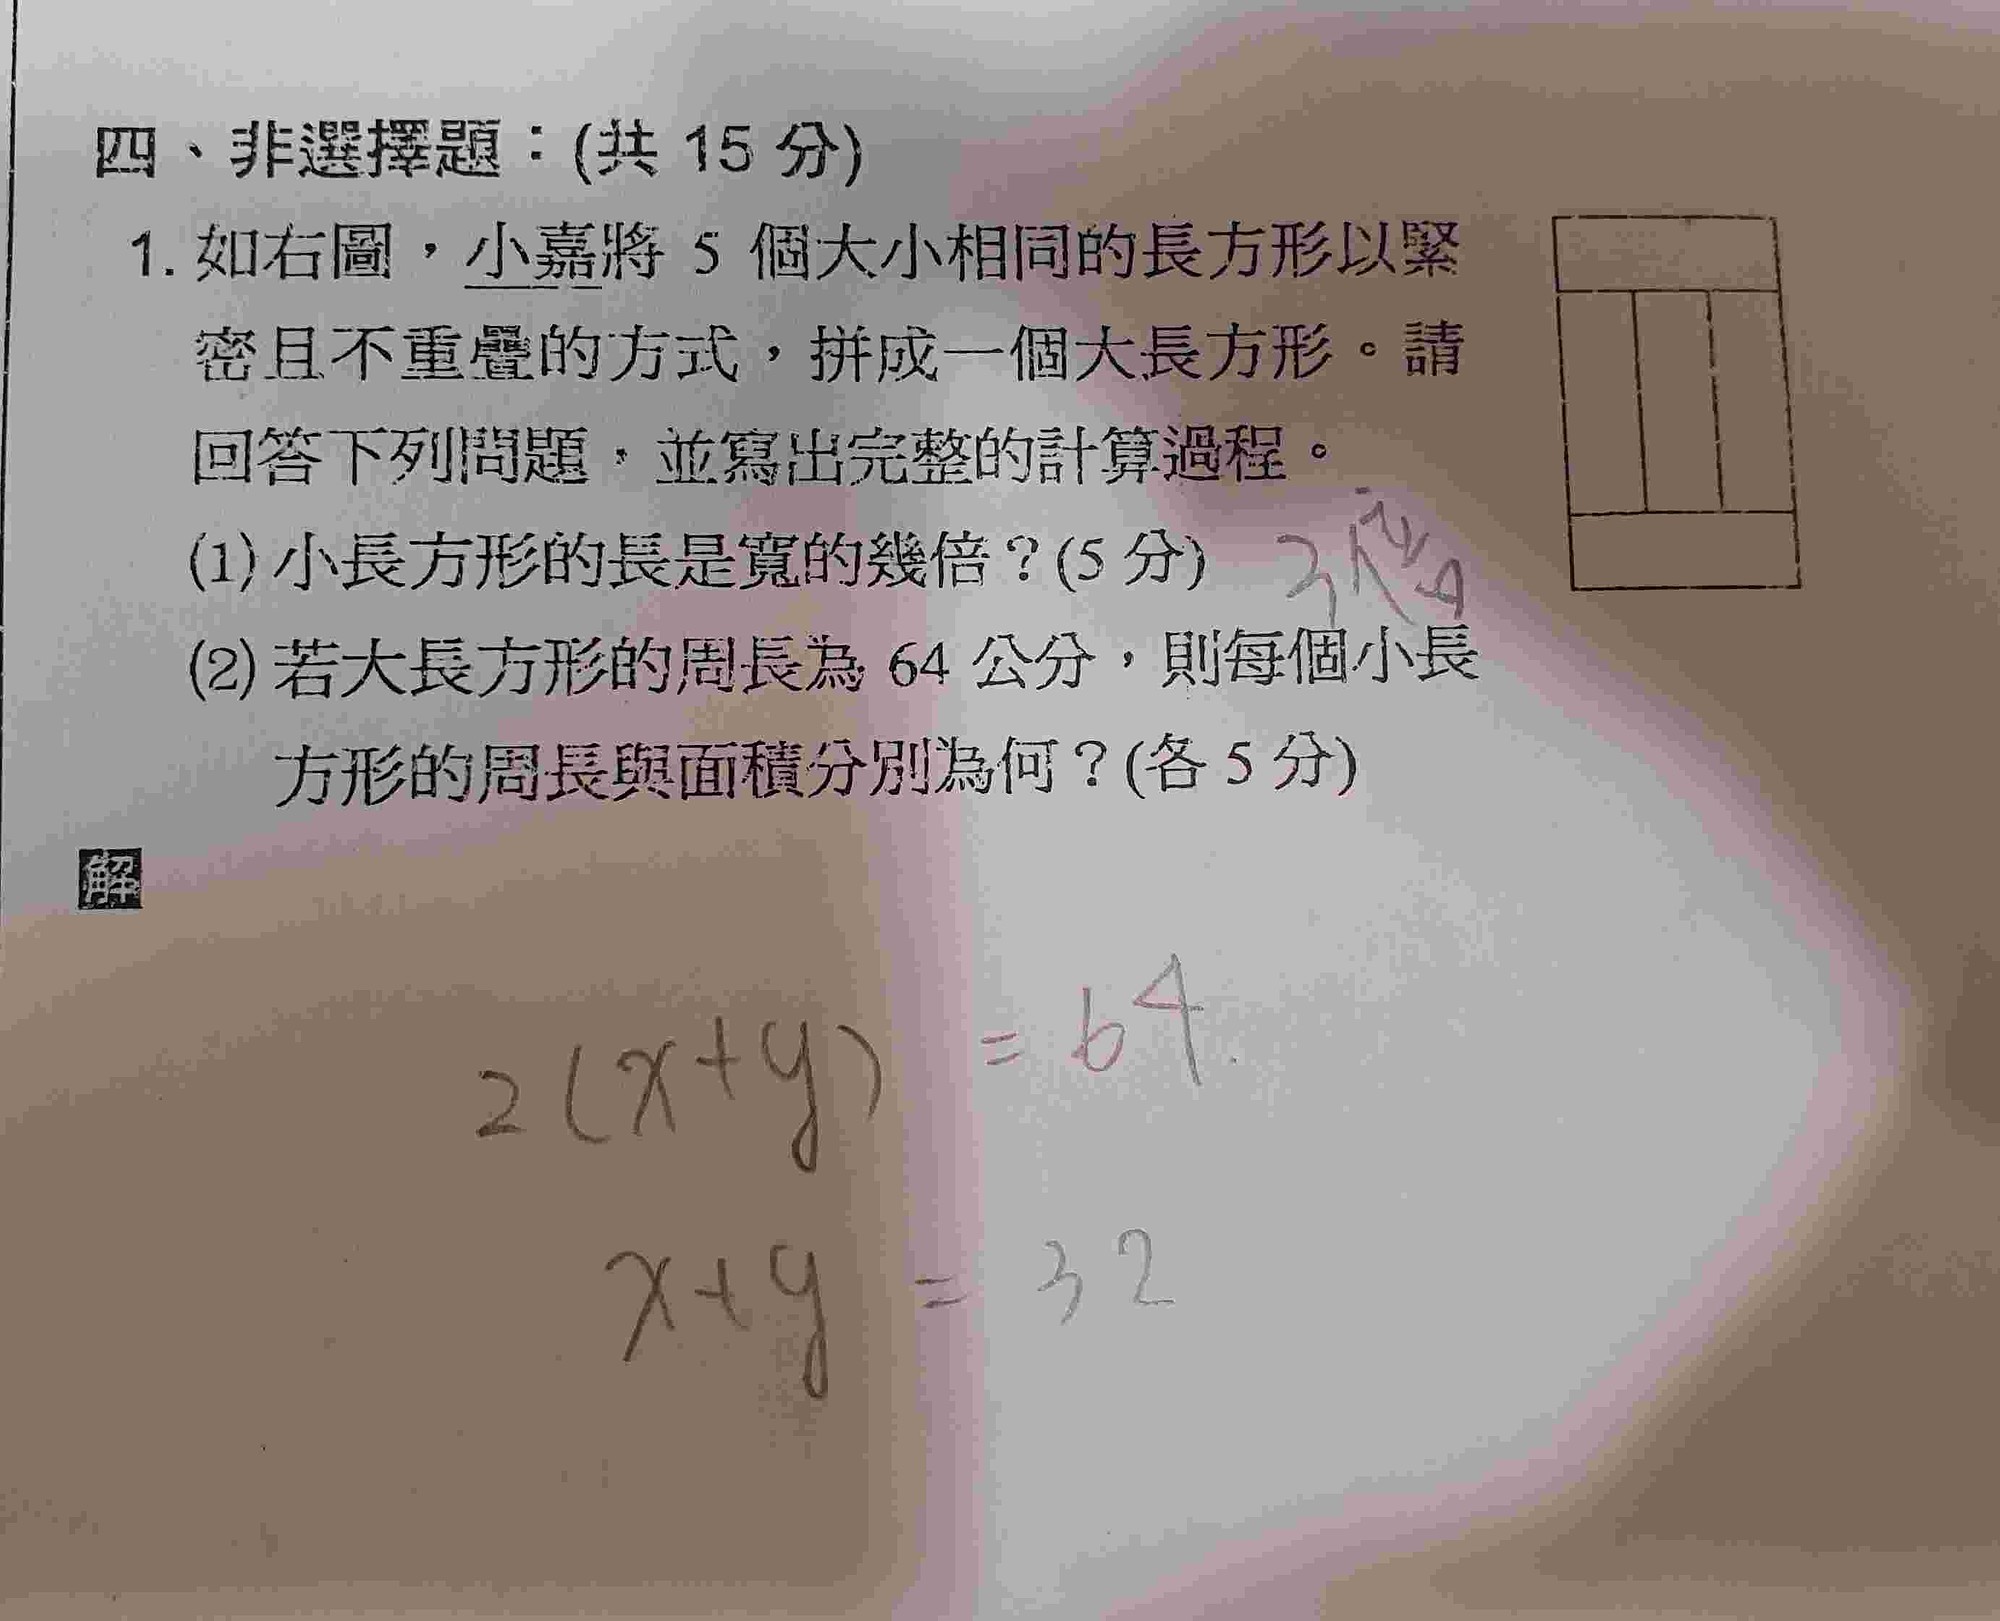 四、非選擇題：(共 15 分)
1. 如右圖，小嘉將 5 個大小相同的長方形以緊
密且不重疊的方式，拼成一個大長方形。請
回答下列問題，並寫出完整的計算過程。
(1) 小長方形的長是寬的幾倍？(5 分) 3倍
(2) 若大長方形的周長為 64 公分，則每個小長
方形的周長與面積分別為何？(各 5 分)
解
2(x+y) = 64
x+y = 32